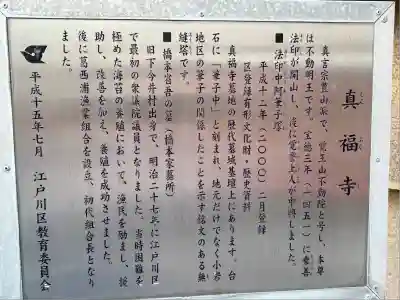 真福寺
しんぷくじ
真言宗豊山派で、覚王山不動院と号し、本尊
は不動明王です。宝徳三年(一四五一)に秀善
法印が開山し、後に覚誉上人が中興しました。
■法印中阿筆子塚
平成十二年(二〇〇〇)二月登録
区登録有形文化財・歴史資料
真福寺墓地の歴代墓域基壇上にあります。台
石に「筆子中」と刻まれ、地元だけでなく小彦
地区の筆子の関係したことを示す銘文のある無
縫塔です。
■橋本富吉の墓(橋本家墓所)
旧下今井村出身で、明治二十七年に江戸川区
で最初の衆議院議員となりました。当時困難を
極めた海苔の養殖において、漁民を励まし、援
助し、改善を加え、養殖を成功させました。
後に葛西浦漁業組合を設立、初代組合長となり
ました。
平成十五年七月　江戸川区教育委員会